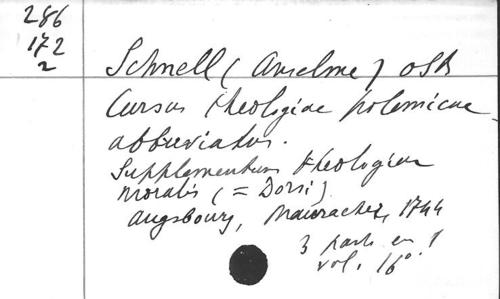 286
172
2
Schnell (Anselme) OSB
Cursus theologiae polemicae
abbreviatus.
Supplementum theologiae
moralis (= Dorsi)
Augsbourg, Mauracher, 1744
3 part. en 1
vol. 16°.